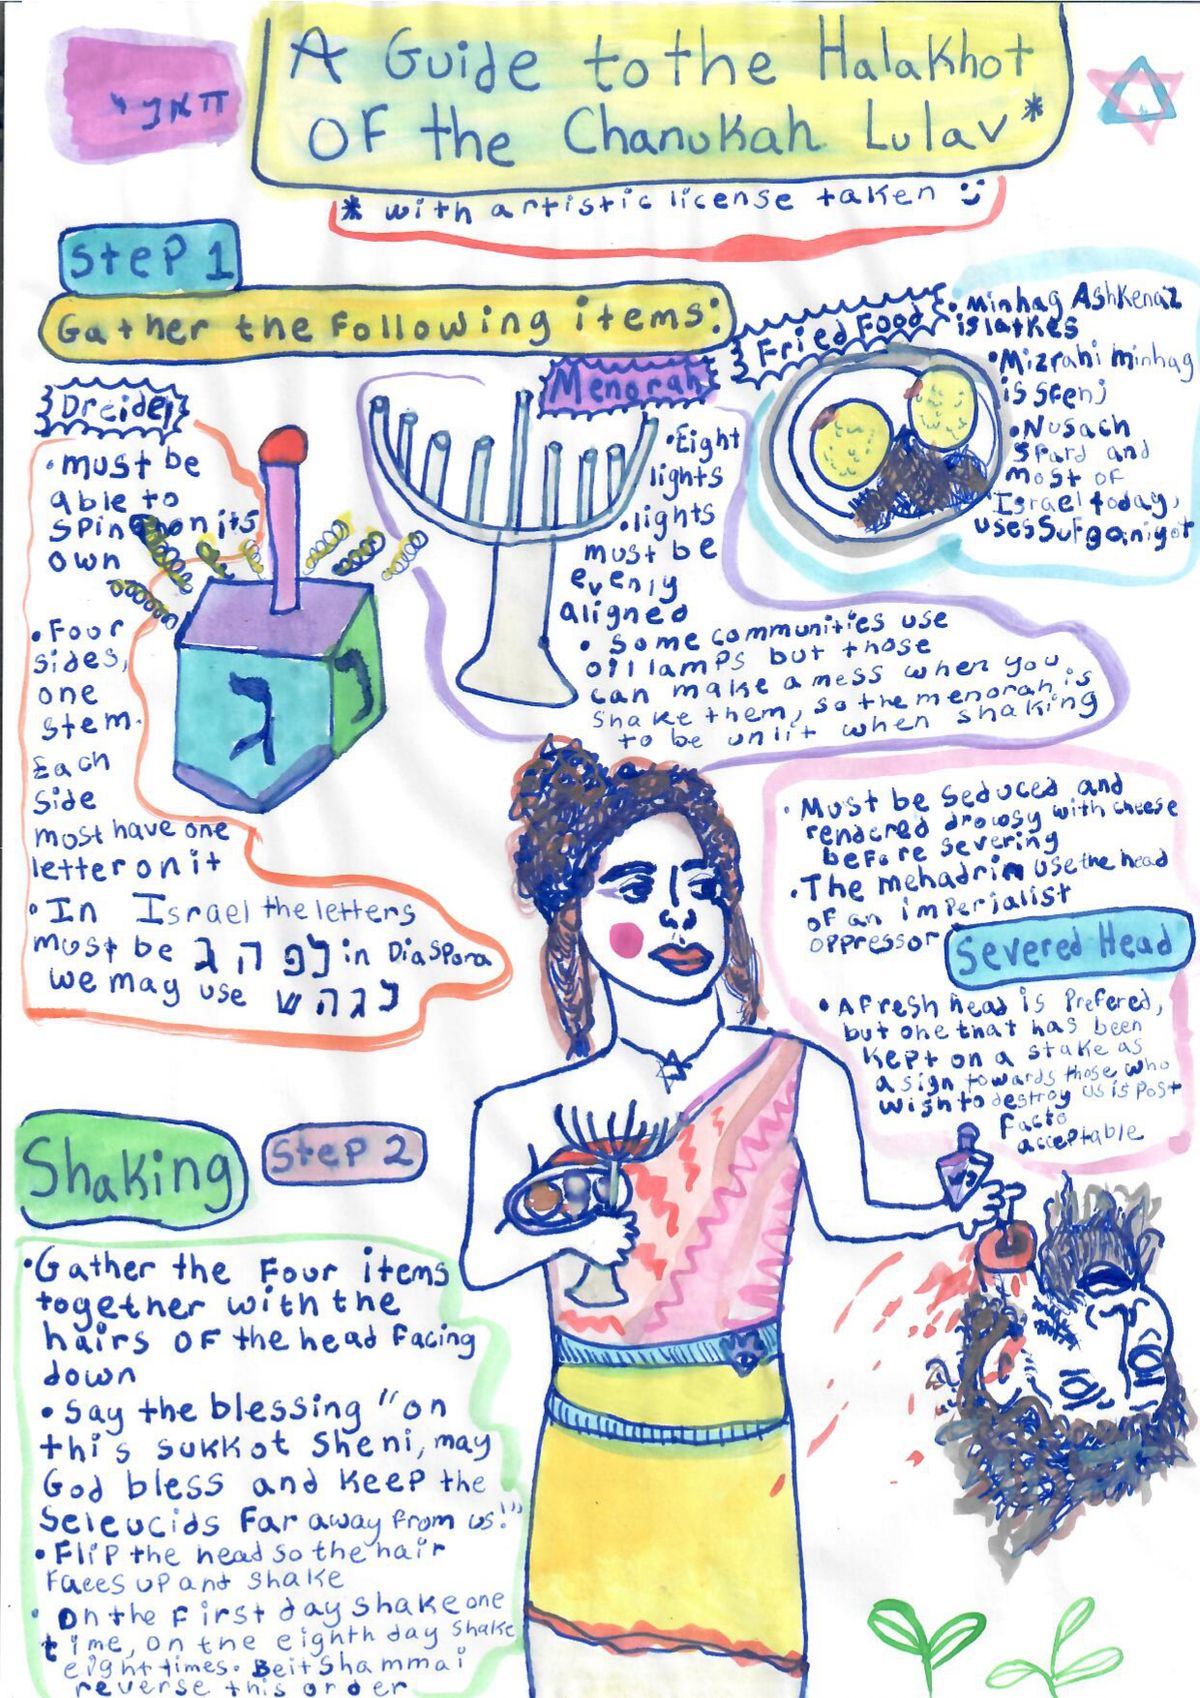 A Guide to the Halakhot
OF the Chanukah Lulav*
* with artistic license taken
Step 1
Gather the Following items:
Dreidel
• must be
able to
spin on its
own
• Four
sides,
one
stem.
Each
side
must have one
letter on it
• In Israel the letters
must be ג ה פ נ in Diaspora
we may use ש ה ג נ
ג
Menorah
• Eight
lights
• lights
must be
evenly
aligned
• Some communities use
oil lamps but those
can make a mess when you
shake them, so the menorah is
to be unlit when shaking
Fried Food
• Minhag Ashkenaz
is latkes
• Mizrahi minhag
is sfenj
• Nusach
Sfard and
most of
Israel today,
uses Sufganiyot
• Must be seduced and
rendered drowsy with cheese
before severing
• The mehadrin use the head
of an imperialist
oppressor
Severed Head
• A fresh head is prefered,
but one that has been
kept on a stake as
a sign towards those who
wish to destroy us is post
facto
acceptable
Shaking
Step 2
• Gather the four items
together with the
hairs of the head facing
down
• Say the blessing "on
this sukkot Sheni, may
God bless and keep the
Seleucids far away from us!"
• Flip the head so the hair
faces up and shake
• On the first day shake one
time, on the eighth day shake
eight times. Beit Shammai
reverse this order